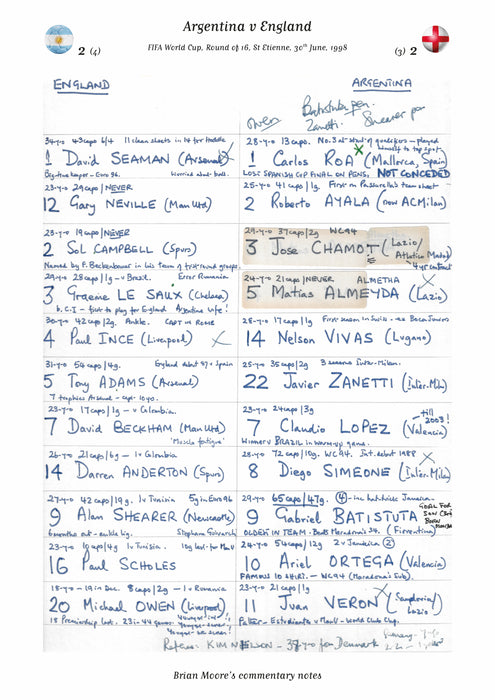 Argentina v England
2 (4)
FIFA World Cup, Round of 16, St Etienne, 30th June, 1998
(3) 2
ENGLAND
ARGENTINA
Owen
Batistuta pen.
Zanetti
Shearer pen
34-y-o 43 caps 6/4 11 clean sheets in 14 for Hoddle
1 David SEAMAN (Arsenal)
Big-time keeper - Euro 96.
Worried about ball.
23-y-o 29 caps/NEVER
12 Gary NEVILLE (Man Utd)
23-y-o 19 caps/NEVER
2 Sol CAMPBELL (Spurs)
Named by F. Beckenbauer in his team of first round groups.
29-y-o 25 caps/1g - v Brazil.
Error Rumania
3 Graeme LE SAUX (Chelsea)
b. C.I - first to play for England Argentina wife!
30-y-o 42 caps/2g. Ankle. CAPT in ROME
4 Paul INCE (Liverpool)
31-y-o 54 caps/4g. England debut '87 v Spain
5 Tony ADAMS (Arsenal)
7 trophies Arsenal - capt 10 yrs.
23-y-o 17 caps/1g - v Colombia.
7 David BECKHAM (Man Utd)
'Muscle fatigue'
26-y-o 21 caps/6g - 1v Colombia
14 Darren ANDERTON (Spurs)
27-y-o 42 caps/19g. 1v Tunisia 5g in Euro 96
9 Alan SHEARER (Newcastle)
6 months out - ankle lig.
23-y-o 10 caps/4g 1v Tunisia.
16 Paul SCHOLES
18-y-o - 19 in Dec. 8 caps/2g - 1v Rumania
20 Michael OWEN (Liverpool)
18 Premiership last. 23 in 44 games
28-y-o 13 caps. No. 3 at start of qualifiers - played himself to top spot
1 Carlos ROA (Mallorca, Spain)
LOST SPANISH CUP FINAL ON PENS. NOT CONCEDED
25-y-o 41 caps/1g. First on Passarella's team sheet
2 Roberto AYALA (now AC Milan)
29-y-o 37 caps/2g WC94
3 Jose CHAMOT (Lazio/
Atletico Madrid)
4 yr contract
24-y-o 21 caps/NEVER ALMETHA
5 Matias ALMEYDA (Lazio)
28-y-o 17 caps/1g First season in Swiss - ex Boca Juniors
14 Nelson VIVAS (Lugano)
25-y-o 35 caps/2g 3 seasons Inter-Milan.
22 Javier ZANETTI (Inter. Mil)
23-y-o 24 caps/3g
7 Claudio LOPEZ (Valencia)
till 2003!
Winner v BRAZIL in warm-up game.
28-y-o 72 caps/10g. WC94. Int. debut 1988
8 Diego SIMEONE (Inter. Mila)
29-y-o 65 caps/47g. 4 - inc hat-trick Jamaica.
9 Gabriel BATISTUTA
OLDEST IN TEAM - Beats Maradona's 34. (Fiorentina)
24-y-o 54 caps/12g 2v Jamaica 2
10 Ariel ORTEGA (Valencia)
FAMOUS 10 SHIRT - WC94 (Maradona's sub).
23-y-o 21 caps/1g
11 Juan VERON (Sampdoria/
Lazio)
Father - Estudiantes v ManU - World Club Cup.
Referee KIM NIELSON - 37 y-o from Denmark
Brian Moore's commentary notes